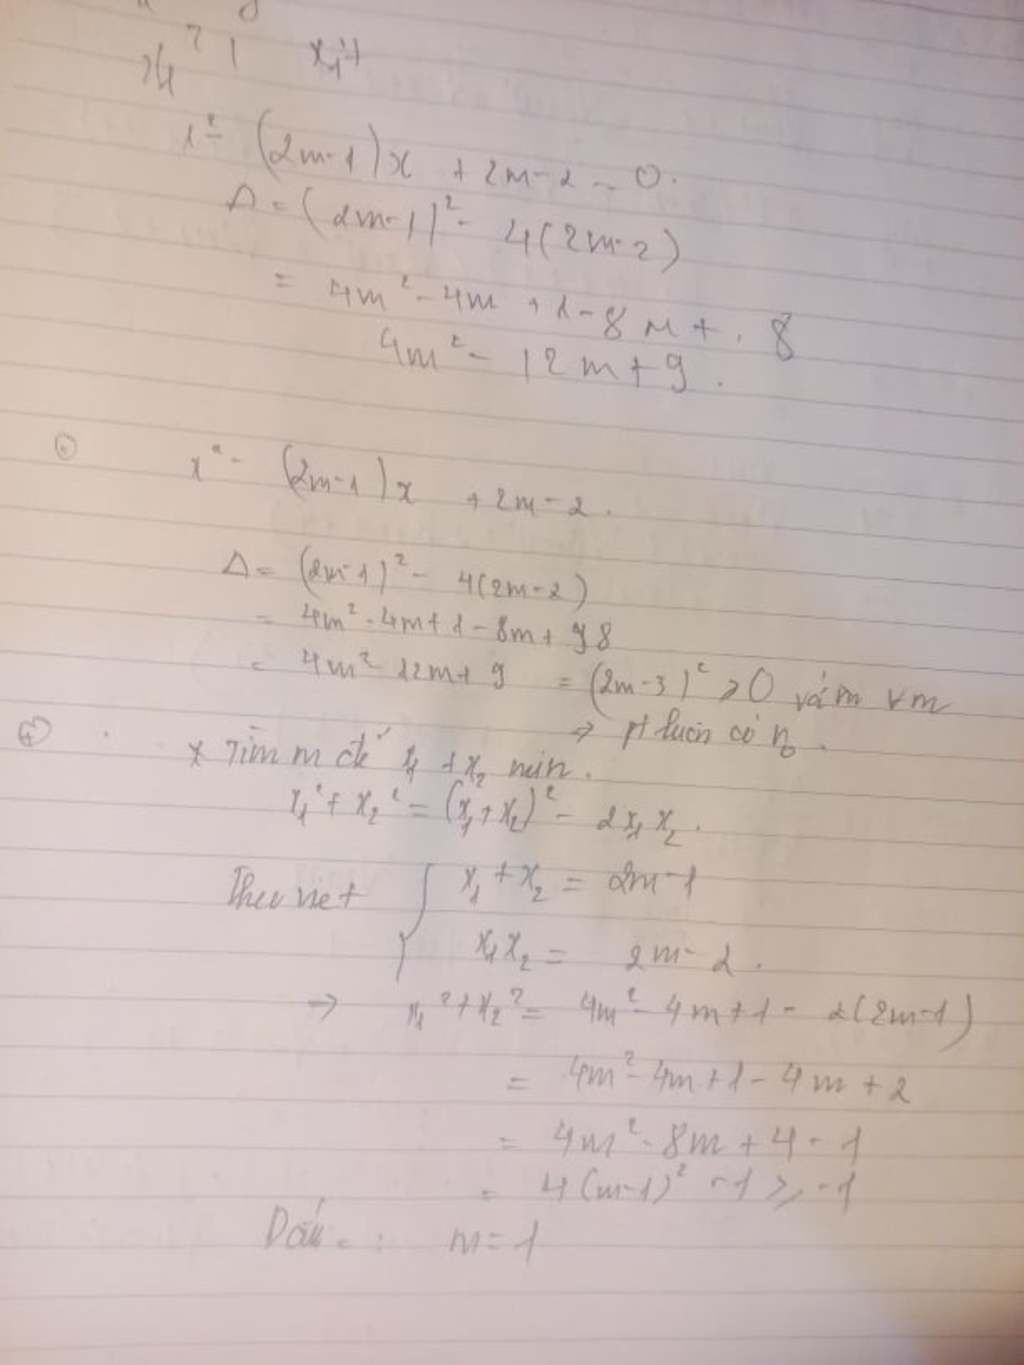 x₁² 1 x₁+
x² - (2m-1)x + 2m-2 = 0.
Δ = (2m-1)² - 4(2m-2)
= 4m² - 4m + 1 - 8m + . 8
4m² - 12m + 9 .
x² - (2m-1)x + 2m-2.
Δ = (2m-1)² - 4(2m-2)
= 4m² - 4m + 1 - 8m + 98
= 4m² 12m + 9 = (2m-3)² ≥ 0 với m ∀m
⇒ pt luôn có n₀.
* Tìm m để x₁ + x₂ min.
x₁² + x₂² = (x₁+x₂)² - 2x₁x₂.
Theo viet { x₁ + x₂ = 2m-1
x₁x₂ = 2m-2.
→ x₁² + x₂² = 4m² - 4m + 1 - 2(2m-1)
= 4m² - 4m + 1 - 4m + 2
= 4m² - 8m + 4 - 1
= 4(m-1)² - 1 ≥ -1
Dấu = : m = 1